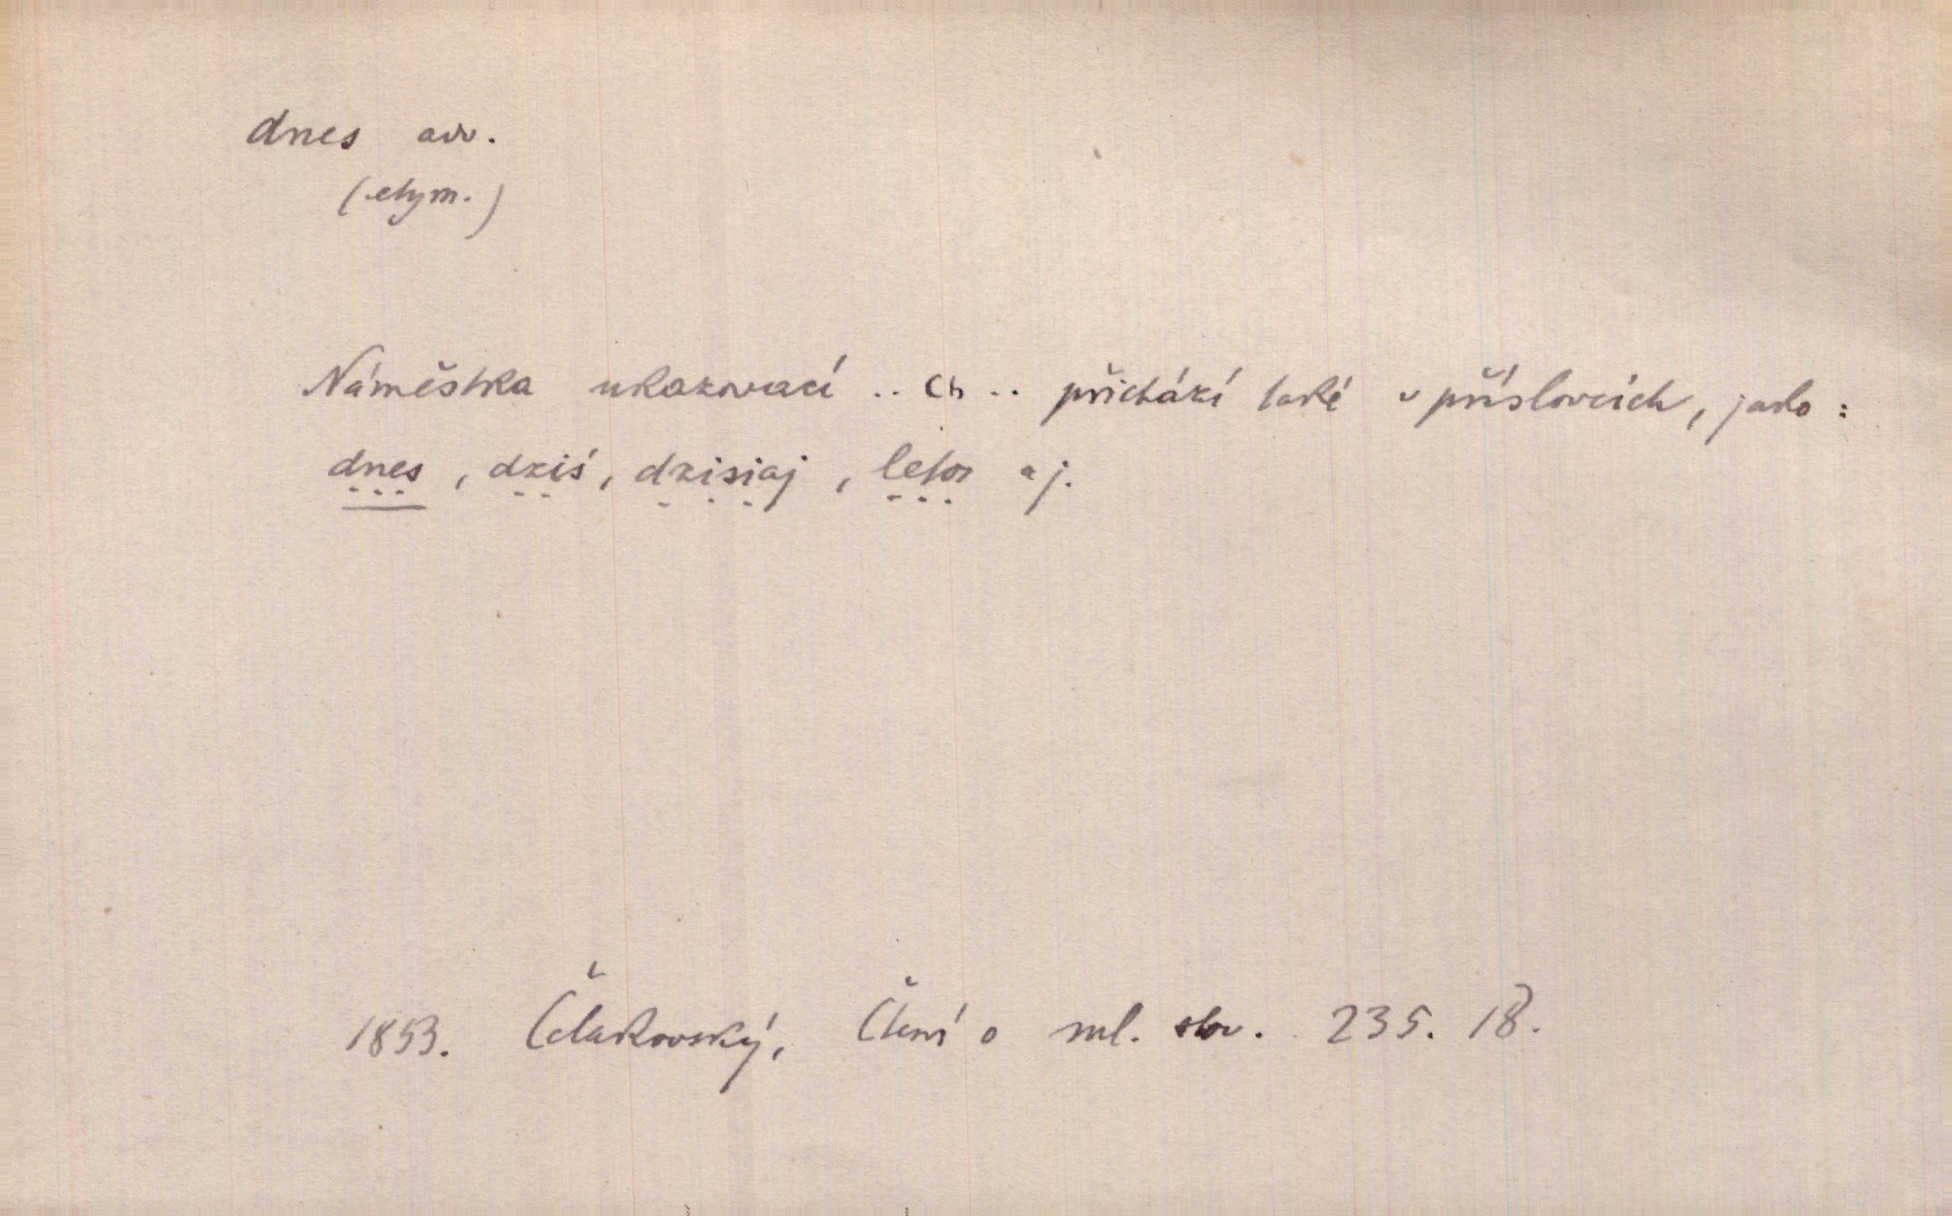 dnes adv.
(etym.)
Náměstka ukazovací .. сь .. přichází také v příslovcích, jako:
dnes, dziś, dzisiaj, letos aj.
1853. Čelakovský, Čtení o ml. slov. 235. 18.